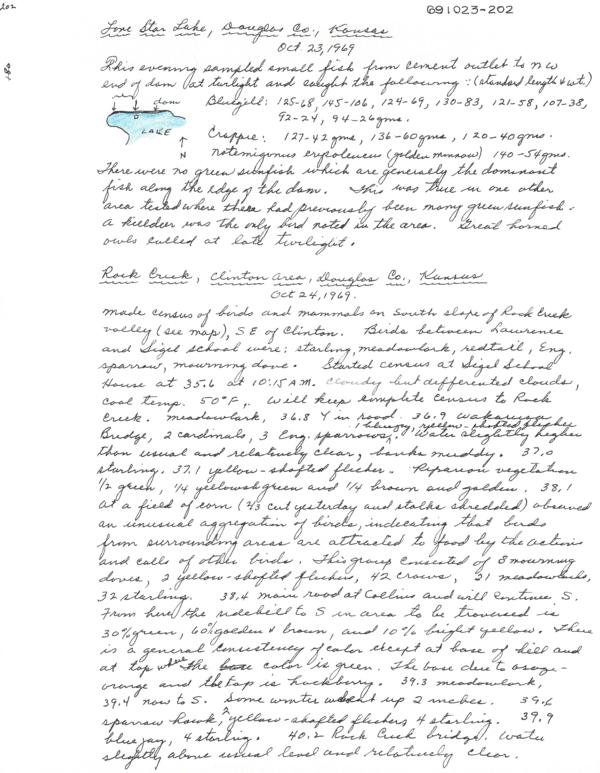 202
691023-202
180
Lone Star Lake, Douglas Co., Kansas
Oct 23, 1969
This evening sampled small fish from cement outlet to NW
end of dam at twilight and caught the following: (standard length & wt.)
Bluegill: 125-68, 145-106, 124-69, 130-83, 121-58, 107-38,
92-24, 94-26gms.
dam
LAKE
N
Crappie: 127-42gms, 136-60gms, 120-40gms.
Notemigonus crysoleucas (golden minnow) 190-54gms.
There were no green sunfish which are generally the dominant
fish along the edge of the dam. This was true in one other
area tested where there had previously been many green sunfish.
A killdeer was the only bird noted in the area. Great horned
owls called at late twilight.
Rock Creek, Clinton Area, Douglas Co., Kansas
Oct 24, 1969.
Made census of birds and mammals on South slope of Rock Creek
valley (see map), SE of Clinton. Birds between Lawrence
and Sigel school were: starling, meadowlark, redtail, Eng.
sparrow, mourning dove. Started census at Sigel School
House at 35.6 at 10:15 A.M. Cloudy but differented clouds,
cool temp. 50°F. Will keep complete census to Rock
Creek. Meadowlark, 36.8 Y in road. 36.9 Wakarusa
1 bluejay, yellow-shafted flicker
Bridge, 2 cardinals, 3 Eng. sparrows. Water slightly higher
than usual and relatively clear, banks muddy. 37.0
starling. 37.1 yellow-shafted flicker. Riparian vegetation
1/2 green, 1/4 yellowish green and 1/4 brown and golden. 38.1
at a field of corn (2/3 cut yesterday and stalks shredded) observed
an unusual aggregation of birds, indicating that birds
from surrounding areas are attracted to food by the action
and calls of other birds. This group consisted of 3 mourning
doves, 2 yellow-shafted flickers, 42 crows, 21 meadowlarks,
32 starling. 38.4 main road at Collins and will continue S.
From here the sidehill to S in area to be traversed is
30% green, 60% golden & brown, and 10% bright yellow. There
is a general consistency of color except at base of hill and
at top where the color is green. The base due to osage-
orange and the top is hackberry. 39.3 meadowlark,
39.4 now to S. Some winter wheat up 2 inches. 39.6
sparrow hawk, yellow-shafted flickers 4 starling. 39.9
blue jay, 4 starling. 40.2 Rock Creek bridge. Water
slightly above usual level and relatively clear.